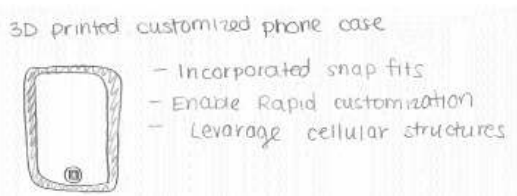 3D printed customized phone case
- Incorporated snap fits
- Enable Rapid customization
- Levarage cellular structures